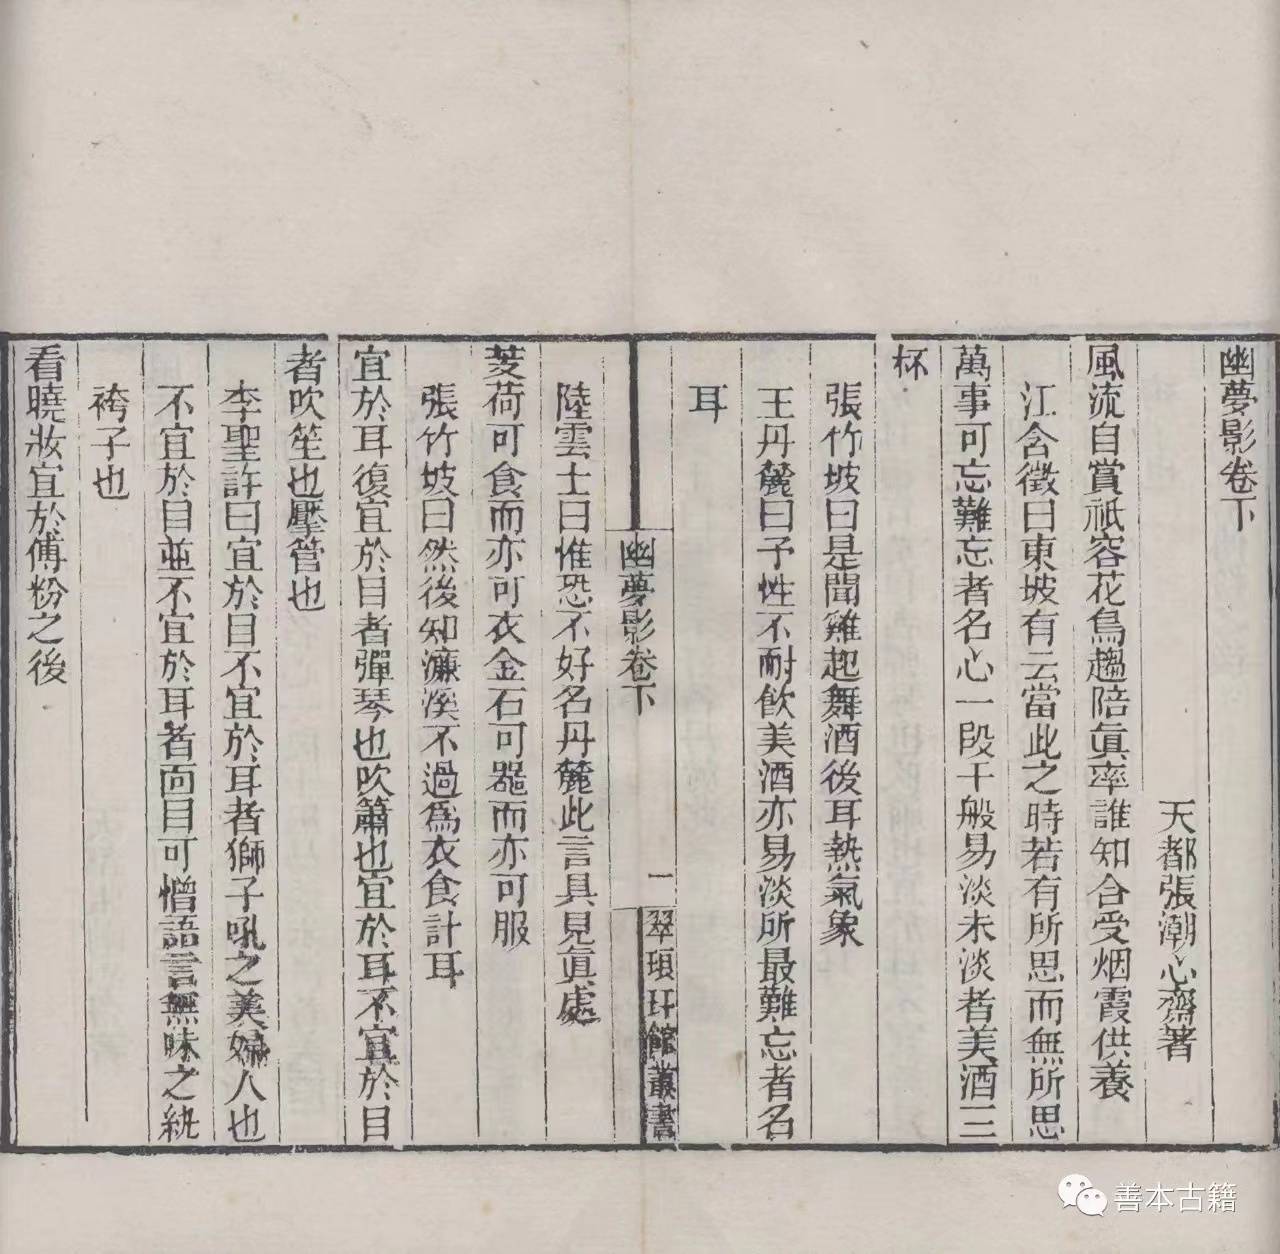 幽夢影卷下
天都張潮心齋著
風流自賞祇容花鳥趨陪眞率誰知合受烟霞供養
江含徵曰東坡有云當此之時若有所思而無所思
萬事可忘難忘者名心一段千般易淡未淡者美酒三
杯
張竹坡曰是聞雞起舞酒後耳熱氣象
王丹麓曰予性不耐飲美酒亦易淡所最難忘者名
耳
幽夢影卷下
一
翠琅玕館叢書
陸雲士曰惟恐不好名丹麓此言具見眞處
芰荷可食而亦可衣金石可器而亦可服
張竹坡曰然後知濂溪不過爲衣食計耳
宜於耳復宜於目者彈琴也吹簫也宜於耳不宜於目
者吹笙也擪管也
李聖許曰宜於目不宜於耳者獅子吼之美婦人也
不宜於目並不宜於耳者面目可憎語言無味之紈
袴子也
看曉妝宜於傅粉之後
善本古籍